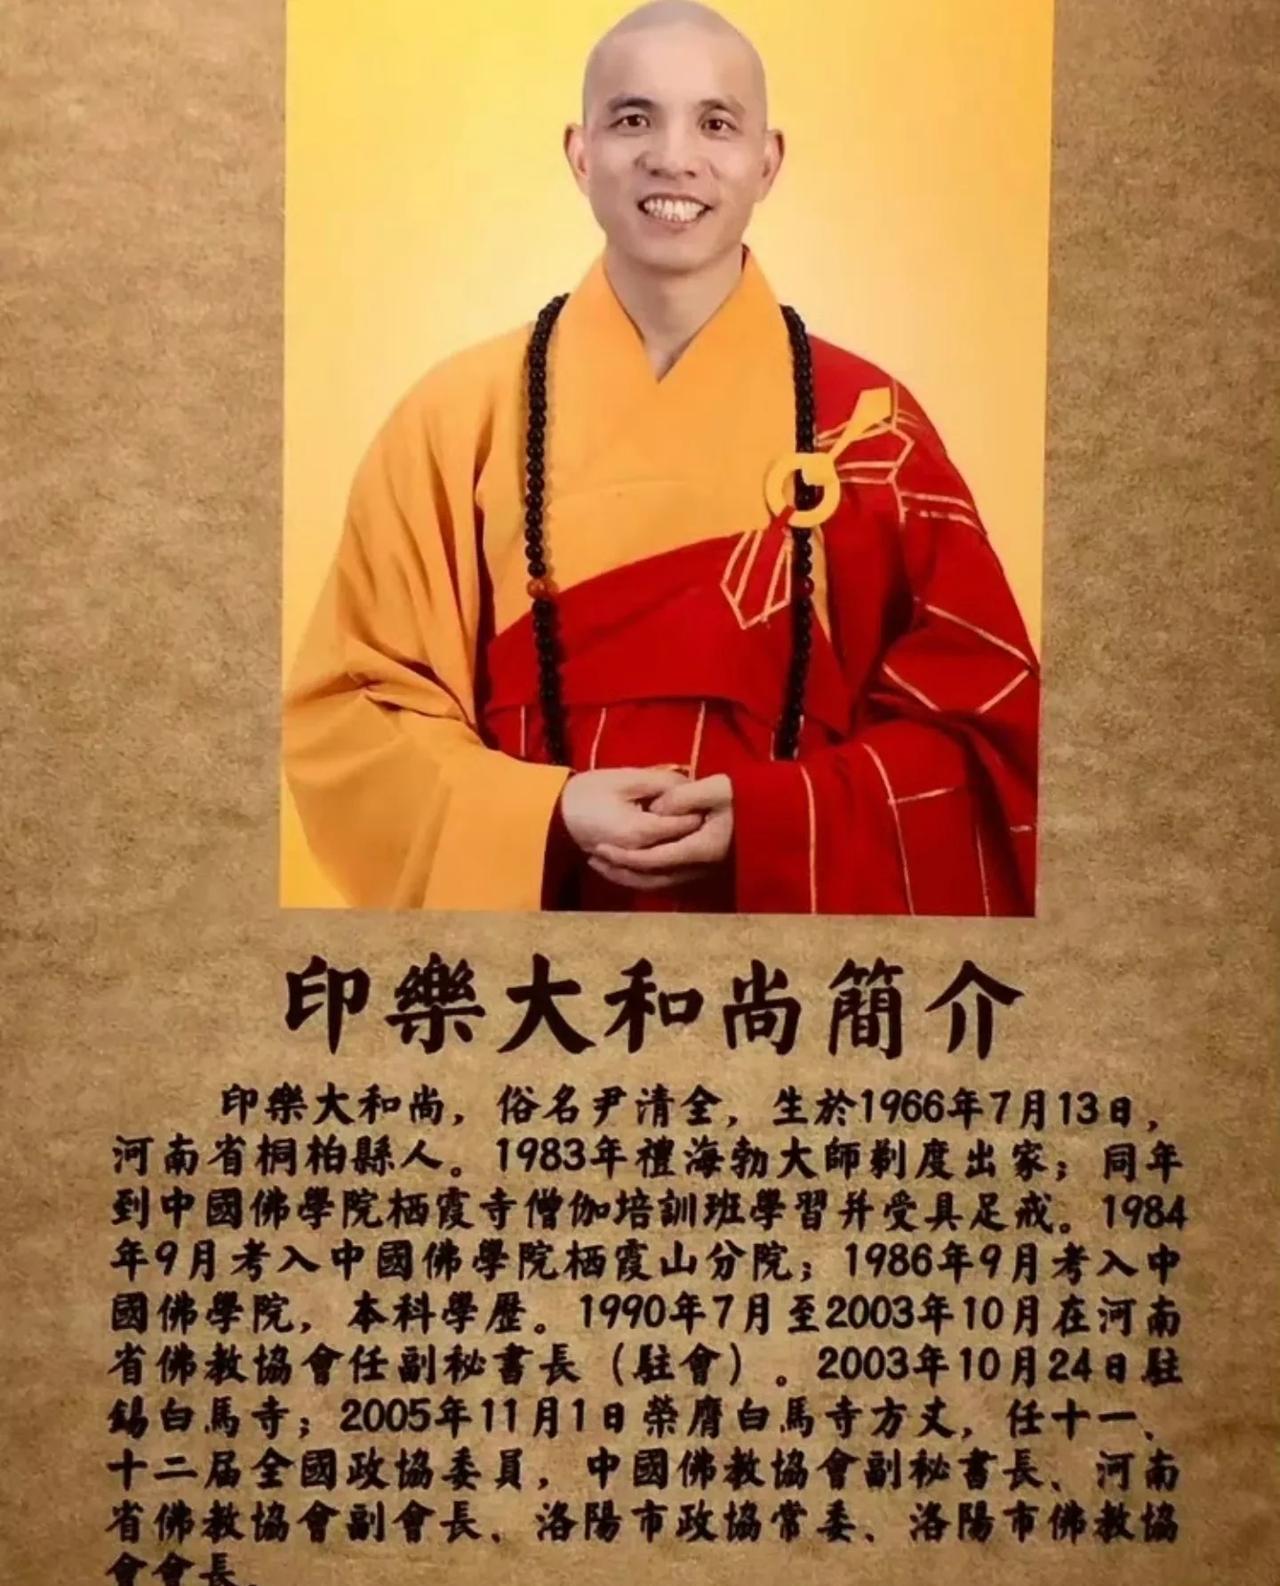 印樂大和尚簡介
印樂大和尚，俗名尹清全，生於1966年7月13日，
河南省桐柏縣人。1983年禮海勃大師剃度出家；同年
到中國佛學院栖霞寺僧伽培訓班學習并受具足戒。1984
年9月考入中國佛學院栖霞山分院；1986年9月考入中
國佛學院，本科學歷。1990年7月至2003年10月在河南
省佛教協會任副秘書長（駐會）。2003年10月24日駐
錫白馬寺；2005年11月1日榮膺白馬寺方丈，任十一、
十二届全國政協委員，中國佛教協會副秘書長、河南
省佛教協會副會長、洛陽市政協常委、洛陽市佛教協
會會長、